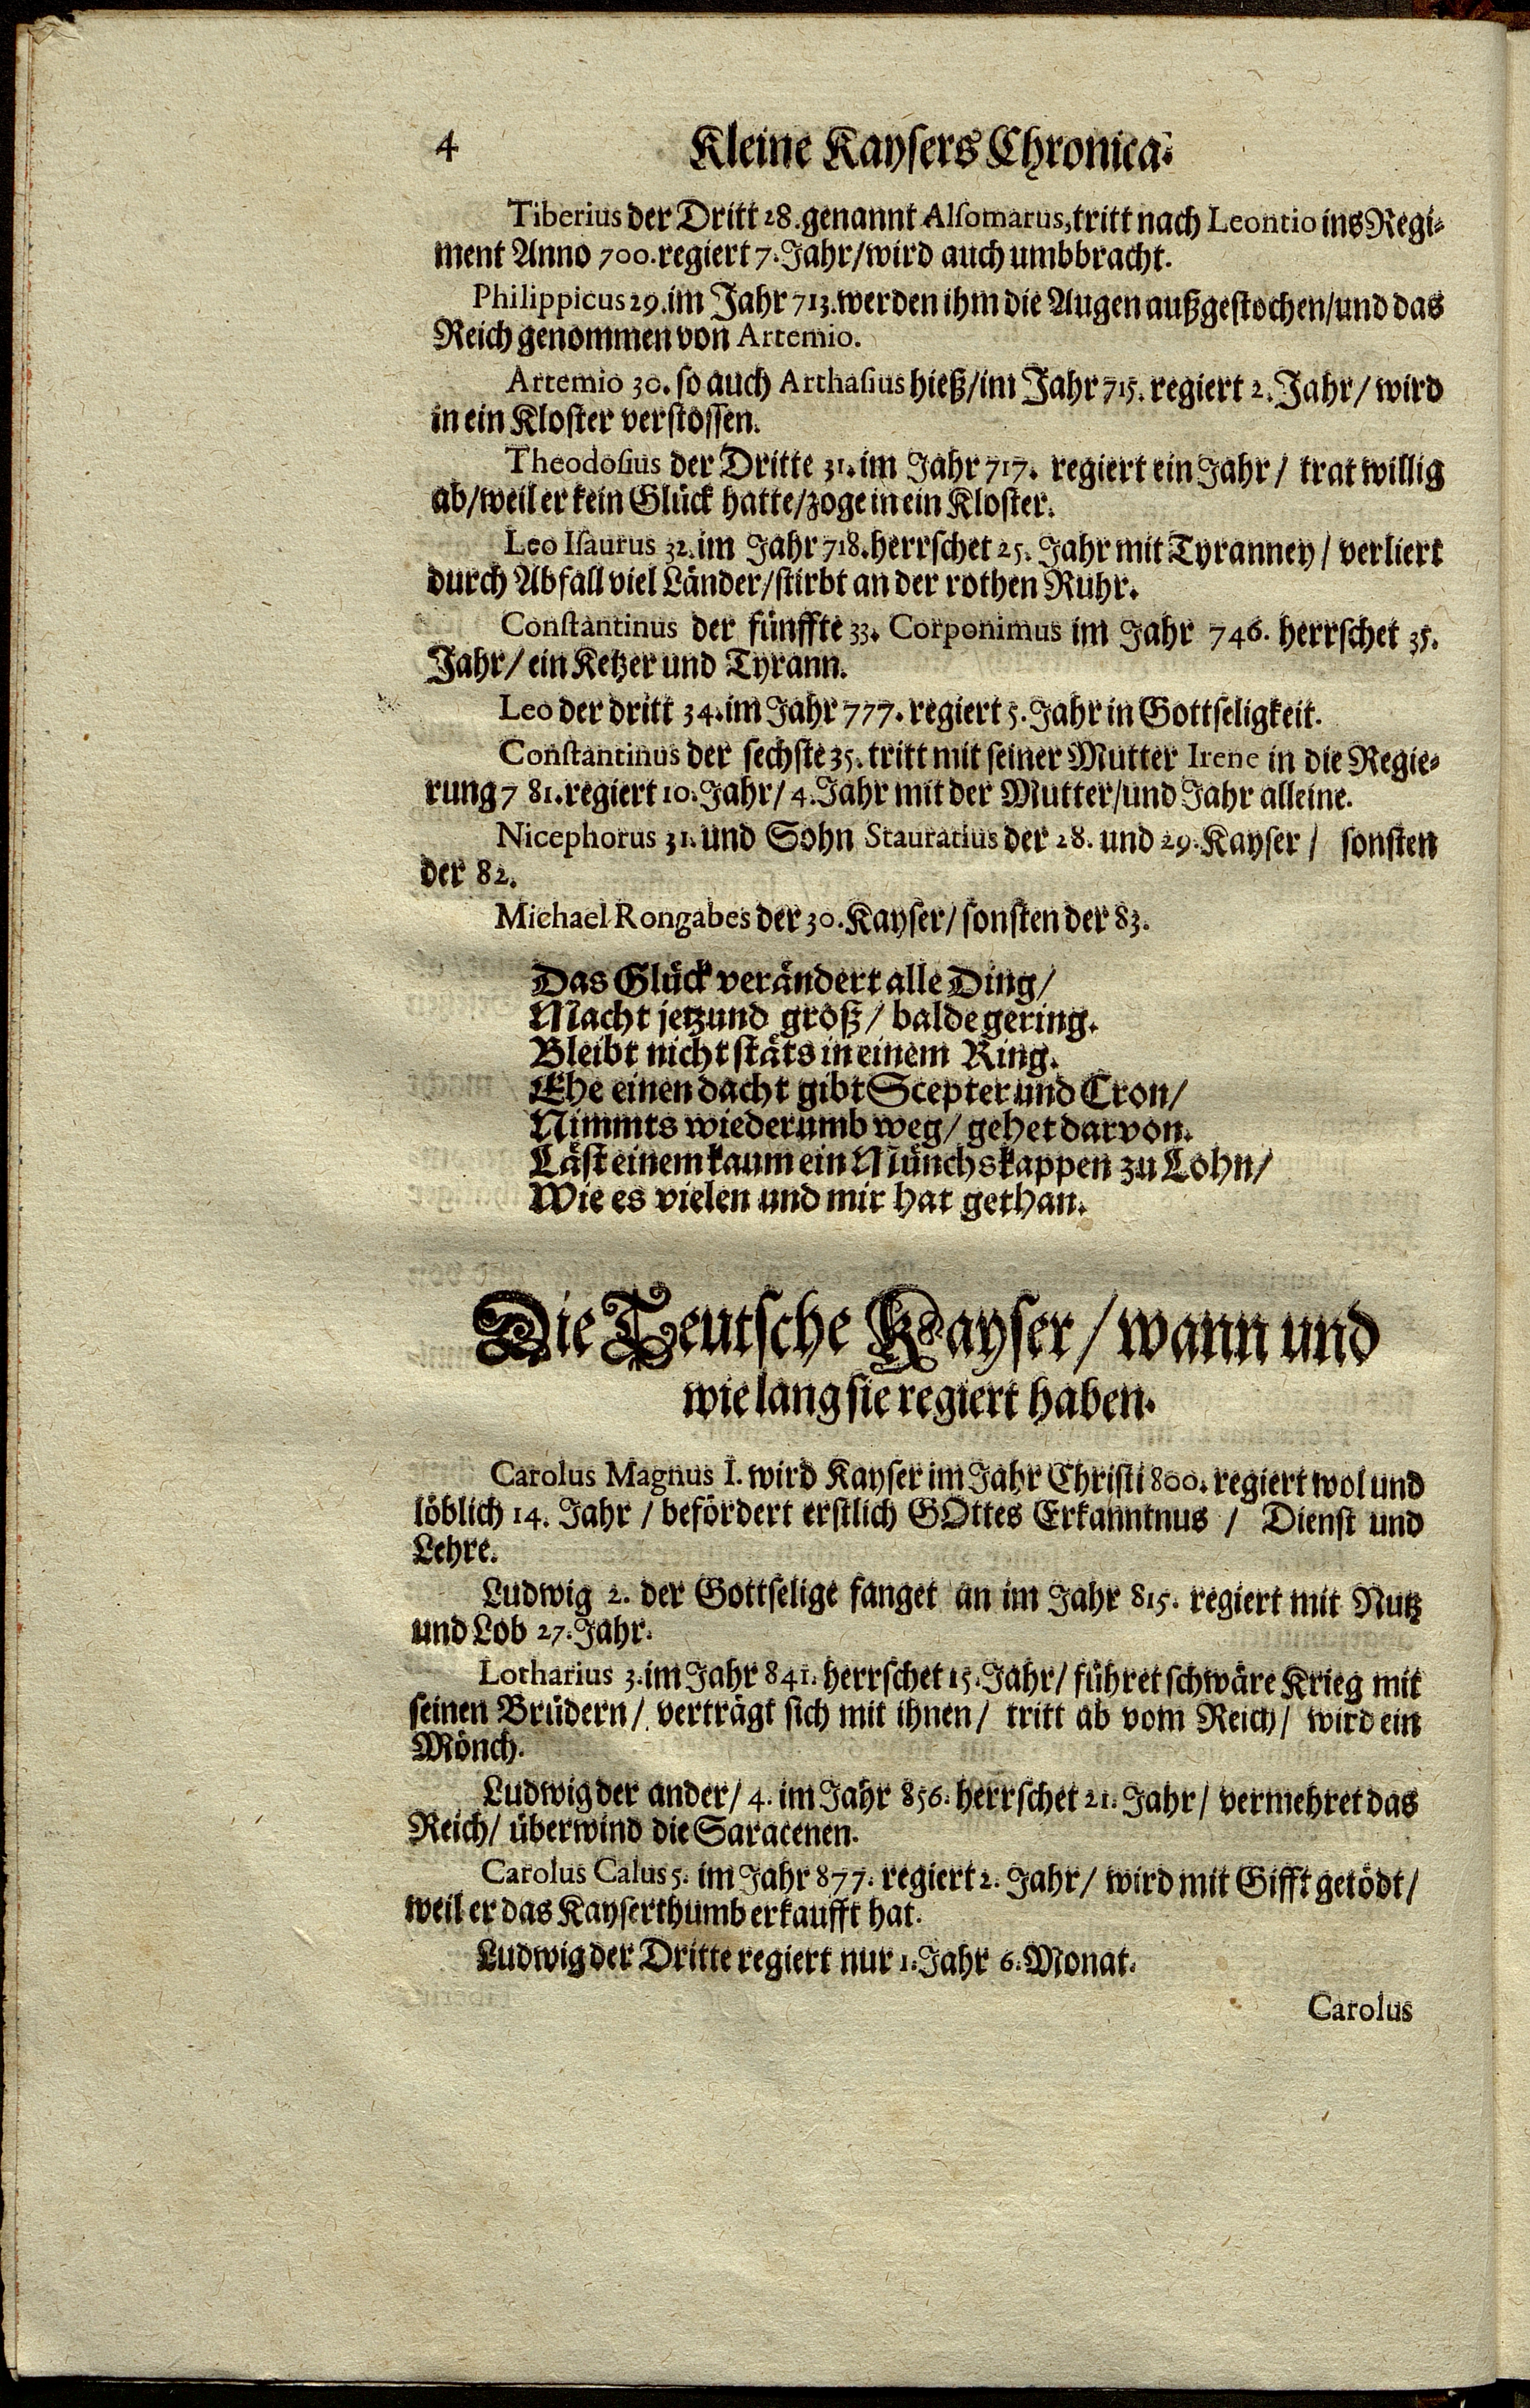 4 Kleine Kaysers Chronica.
Tiberius der Dritt 28. genannt Alsomarus, tritt nach Leontio ins Regi-
ment Anno 700. regiert 7. Jahr/ wird auch umbbracht.
Philippicus 29. im Jahr 713. werden ihm die Augen außgestochen/ und das
Reich genommen von Artemio.
Artemio 30. so auch Arthasius hieß/ im Jahr 715. regiert 2. Jahr/ wird
in ein Kloster verstossen.
Theodosius der Dritte 31. im Jahr 717. regiert ein Jahr/ trat willig
ab/ weil er kein Glück hatte/ zoge in ein Kloster.
Leo Isaurus 32. im Jahr 718. herrschet 25. Jahr mit Tyranney/ verliert
durch Abfall viel Länder/ stirbt an der rothen Ruhr.
Constantinus der fünffte 33. Corponimus im Jahr 746. herrschet 35.
Jahr/ ein Ketzer und Tyrann.
Leo der dritt 34. im Jahr 777. regiert 5. Jahr in Gottseligkeit.
Constantinus der sechste 35. tritt mit seiner Mutter Irene in die Regie-
rung 7 81. regiert 10. Jahr/ 4. Jahr mit der Mutter/ und Jahr alleine.
Nicephorus 31. und Sohn Stauratius der 28. und 29. Kayser/ sonsten
der 82.
Michael Rongabes der 30. Kayser/ sonsten der 83.
Das Glück verändert alle Ding/
Macht jetzund groß/ balde gering.
Bleibt nicht stäts in einem Ring.
Ehe einen dacht gibt Scepter und Cron/
Nimmts wiederumb weg/ gehet darvon.
Läst einem kaum ein Münchskappen zu Lohn/
Wie es vielen und mir hat gethan.
Die Teutsche Kayser/ wann und
wie lang sie regiert haben.
Carolus Magnus I. wird Kayser im Jahr Christi 800. regiert wol und
löblich 14. Jahr/ befördert erstlich GOttes Erkanntnus/ Dienst und
Lehre.
Ludwig 2. der Gottselige fanget an im Jahr 815. regiert mit Nutz
und Lob 27. Jahr.
Lotharius 3. im Jahr 841. herrschet 15. Jahr/ führet schwäre Krieg mit
seinen Brüdern/ verträgt sich mit ihnen/ tritt ab vom Reich/ wird ein
Mönch.
Ludwig der ander/ 4. im Jahr 856. herrschet 21. Jahr/ vermehret das
Reich/ überwind die Saracenen.
Carolus Calus 5. im Jahr 877. regiert 2. Jahr/ wird mit Gifft getödt/
weil er das Kayserthumb erkaufft hat.
Ludwig der Dritte regiert nur 1. Jahr 6. Monat.
Carolus